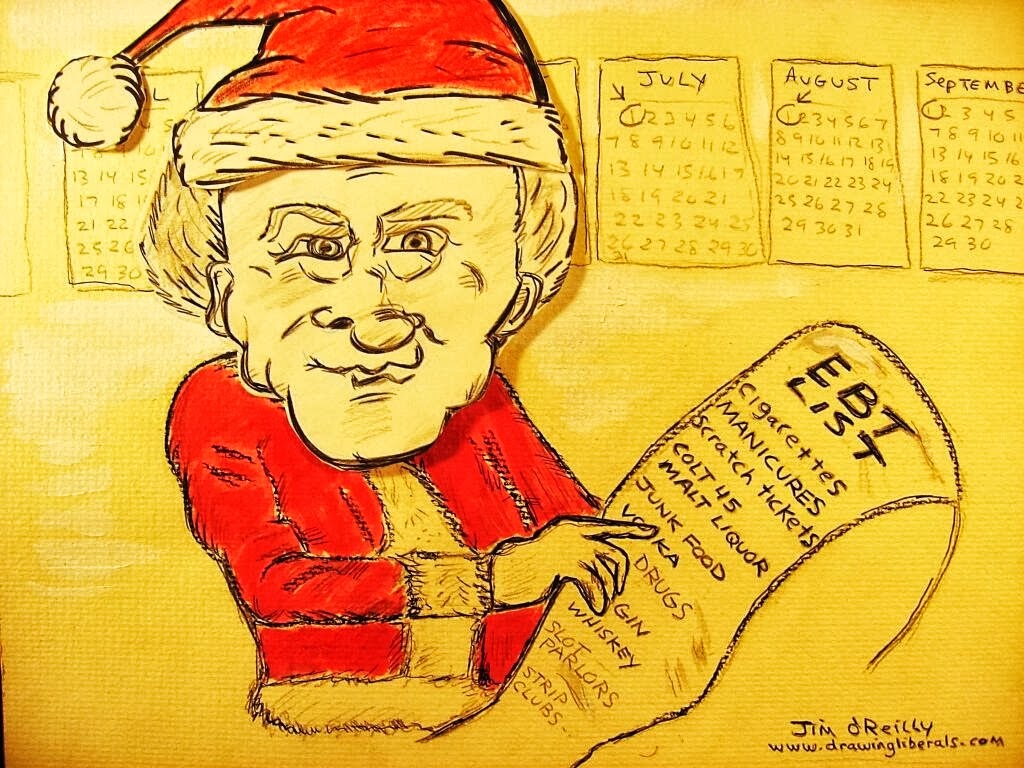 L
13 14 15
17 18
21 22
25 26
29 30
JULY
1 2 3 4 5 6
7 8 9 10 11 12
13 14 15 16 17
18 19 20 21
22 23 24 25
26 27 28 29 30
31
AUGUST
1 2 3 4 5 6 7
8 9 10 11 12 13
14 15 16 17 18 19
20 21 22 23 24
25 26 27 28
29 30 31
SepTEMBE
1 2 3 4 5
7 8 9 10 11
13 14 15 16
18 19 20 2
22 23 24 2
26 27 28
29 30
EBT
LIST
Cigarettes
MANICURES
Scratch tickets
COLT 45
MALT LIQUOR
JUNK FOOD
VODKA
DRUGS
GIN
WHISKEY
SLOT
PARLORS
STRIP
CLUBS.
Jim O'Reilly
www.drawingliberals.com